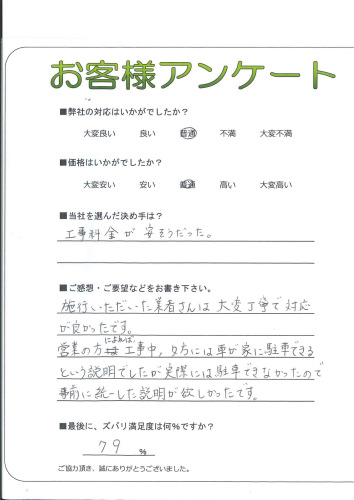 お客様アンケート
■弊社の対応はいかがでしたか?
大変良い 良い 普通 不満 大変不満
■価格はいかがでしたか?
大変安い 安い 普通 高い 大変高い
■当社を選んだ決め手は?
工事料金が安そうだった。
■ご感想・ご要望などをお書き下さい。
施行いただいた業者さんは大変丁寧で対応
が良かったです。
営業の方によれば、工事中,夕方には車が家に駐車できる
という説明でしたが実際には駐車できなかったので
事前に統一した説明が欲しかったです。
■最後に、ズバリ満足度は何%ですか?
79 %
ご協力頂き、誠にありがとうございました。